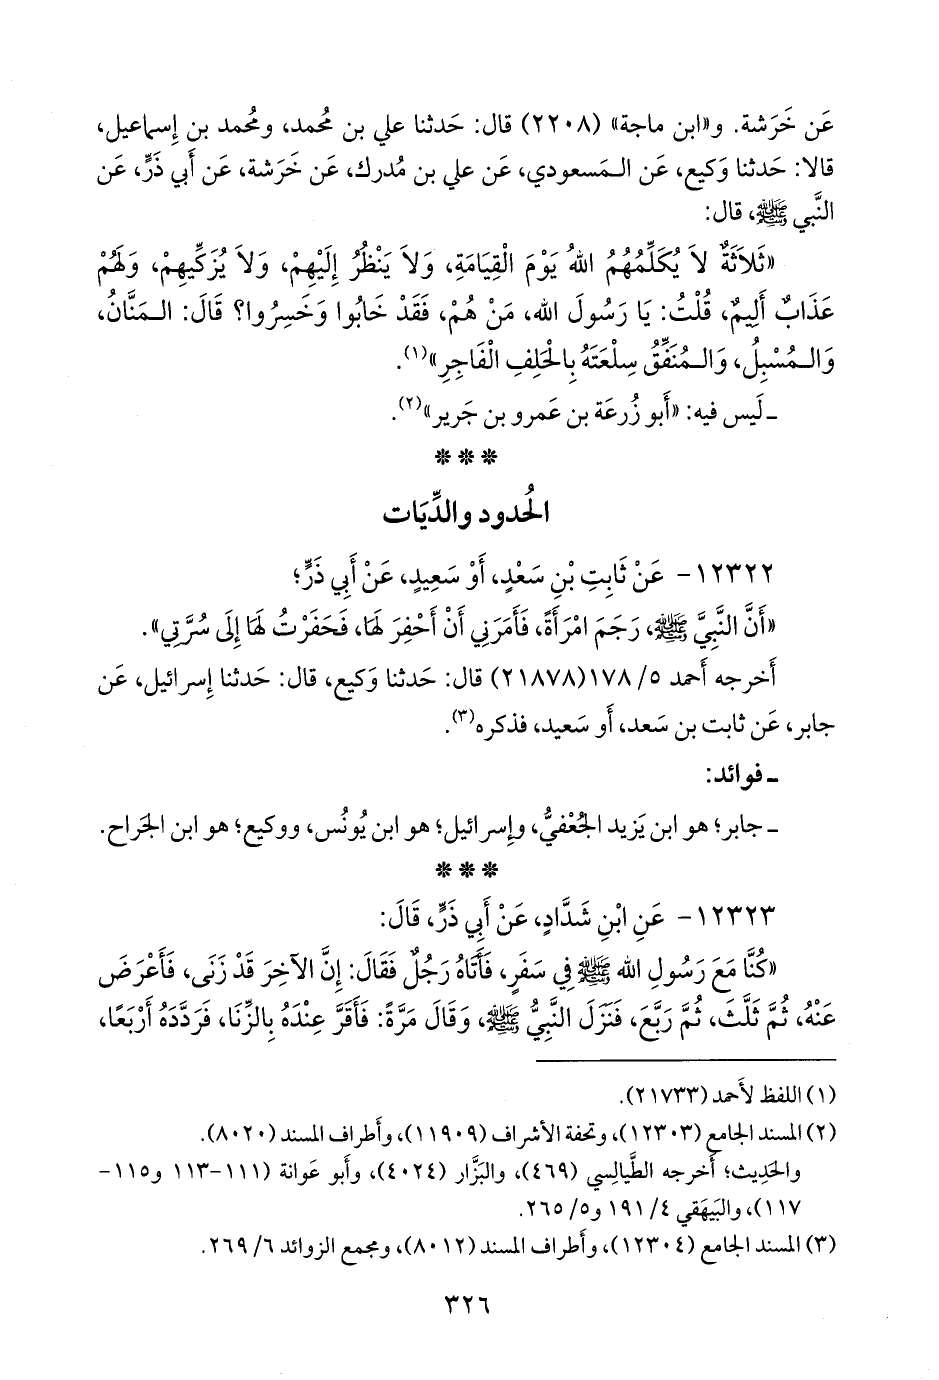 عَن خَرَشة. و«ابن ماجة» (٢٢٠٨) قال: حَدثنا علي بن مُحمد، ومُحمد بن إِسماعيل،
قالا: حَدثنا وَكيع، عَن الـمَسعودي، عَن علي بن مُدرك، عَن خَرَشة، عَن أَبي ذَرٍّ، عَن
النَّبي ﷺ، قال:
«ثَلاَثَةٌ لاَ يُكَلِّمُهُمُ اللهُ يَوْمَ الْقِيَامَةِ، وَلاَ يَنْظُرُ إِلَيْهِمْ، وَلاَ يُزَكِّيهِمْ، وَلَهُمْ
عَذَابٌ أَلِيمٌ، قُلْتُ: يَا رَسُولَ الله، مَنْ هُمْ، فَقَدْ خَابُوا وَخَسِرُوا؟ قَالَ: الـمَنَّانُ،
وَالـمُسْبِلُ، وَالـمُنَفِّقُ سِلْعَتَهُ بِالْحَلِفِ الْفَاجِرِ»(١).
ـ لَيس فيه: «أَبو زُرعَة بن عَمرو بن جَرير»(٢).
* * *
الحُدود والدِّيَات
١٢٣٢٢- عَنْ ثَابِتِ بْنِ سَعْدٍ، أَوْ سَعِيدٍ، عَنْ أَبِي ذَرٍّ؛
«أَنَّ النَّبِيَّ ﷺ، رَجَمَ امْرَأَةً، فَأَمَرَنِي أَنْ أَحْفِرَ لَهَا، فَحَفَرْتُ لَهَا إِلَى سُرَّتِي».
أَخرجه أَحمد ٥/ ١٧٨(٢١٨٧٨) قال: حَدثنا وَكيع، قال: حَدثنا إِسرائيل، عَن
جابر، عَن ثابت بن سَعد، أَو سَعيد، فذكره(٣).
ـ فوائد:
ـ جابر؛ هو ابن يَزيد الجُعْفيُّ، وإِسرائيل؛ هو ابن يُونُس، ووكيع؛ هو ابن الجَراح.
* * *
١٢٣٢٣- عَنِ ابْنِ شَدَّادٍ، عَنْ أَبِي ذَرٍّ، قَالَ:
«كُنَّا مَعَ رَسُولِ الله ﷺ فِي سَفَرٍ، فَأَتَاهُ رَجُلٌ فَقَالَ: إِنَّ الآخِرَ قَدْ زَنَى، فَأَعْرَضَ
عَنْهُ، ثُمَّ ثَلَّثَ، ثُمَّ رَبَّعَ، فَنَزَلَ النَّبِيُّ ﷺ، وَقَالَ مَرَّةً: فَأَقَرَّ عِنْدَهُ بِالزِّنَا، فَرَدَّدَهُ أَرْبَعًا،
(١) اللفظ لأَحمد (٢١٧٣٣).
(٢) المسند الجامع (١٢٣٠٣)، وتحفة الأشراف (١١٩٠٩)، وأَطراف المسند (٨٠٢٠).
والحَدِيث؛ أَخرجه الطَّيالِسي (٤٦٩)، والبَزَّار (٤٠٢٤)، وأَبو عَوانة (١١١-١١٣ و١١٥-
١١٧)، والبَيهَقي ٤/ ١٩١ و٥/ ٢٦٥.
(٣) المسند الجامع (١٢٣٠٤)، وأَطراف المسند (٨٠١٢)، ومجمع الزوائد ٦/ ٢٦٩.
٣٢٦